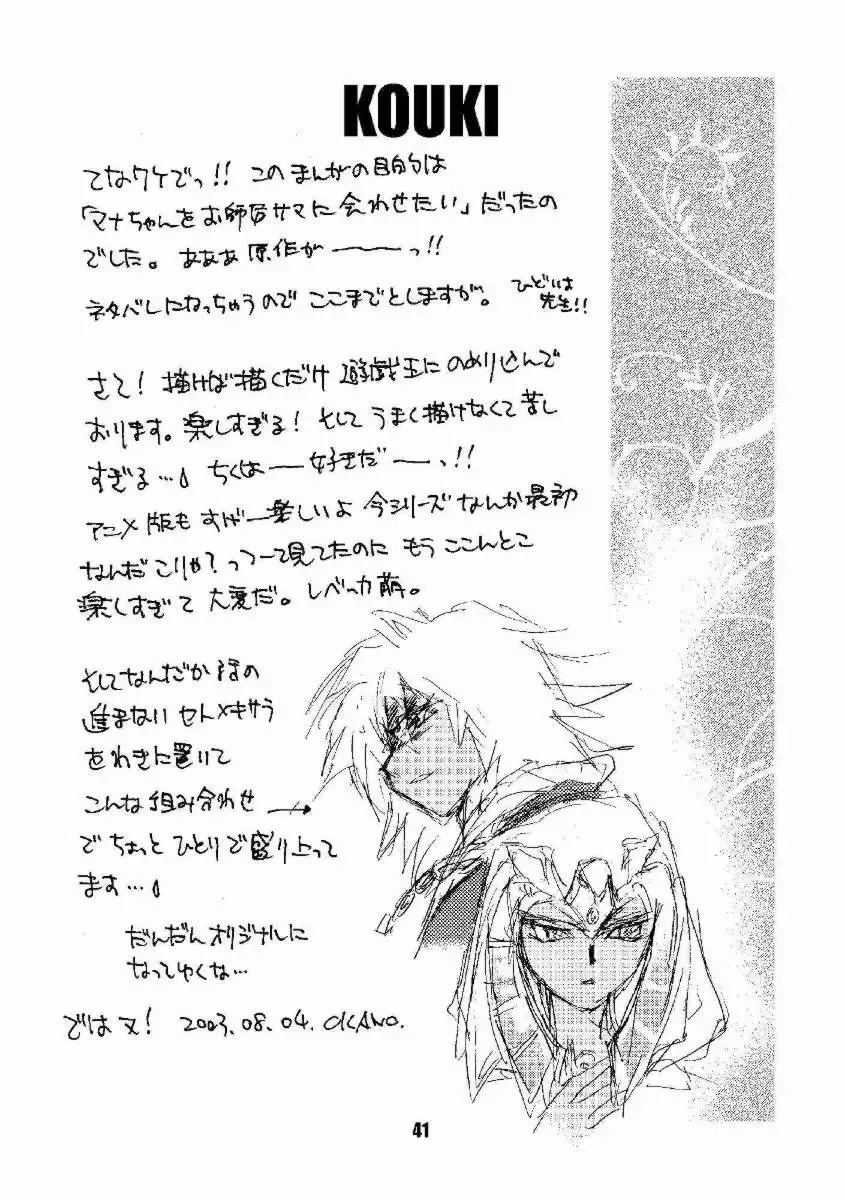 KOUKI
てなワケでっ!! このまんがの目的は
「マナちゃんをお師匠サマに会わせたい」だったの
でした。あああ原作が―――っ!!
ネタバレになっちゃうので ここまでとしますが。
ひどいは
先生!!
さて! 描けば描くだけ 遊戯王にのめり込んで
おります。楽しすぎる! そして うまく描けなくて苦し
すぎる… ちくは――好きだ――っ!!
アニメ版も すげー楽しいよ 今シリーズ なんか最初
なんだこりゃ? っつーて見てたのに もう ここんとこ
楽しすぎて 大変だ。レベッカ萌。
そしてなんだか 筆の
進まない セト×キサラ
をわきに置いて
こんな 組み合わせ →
で ちょっと ひとりで盛り上って
ます…
だんだん オリジナルに
なってゆくな…
では又! 2003.08.04. OKANO.
41